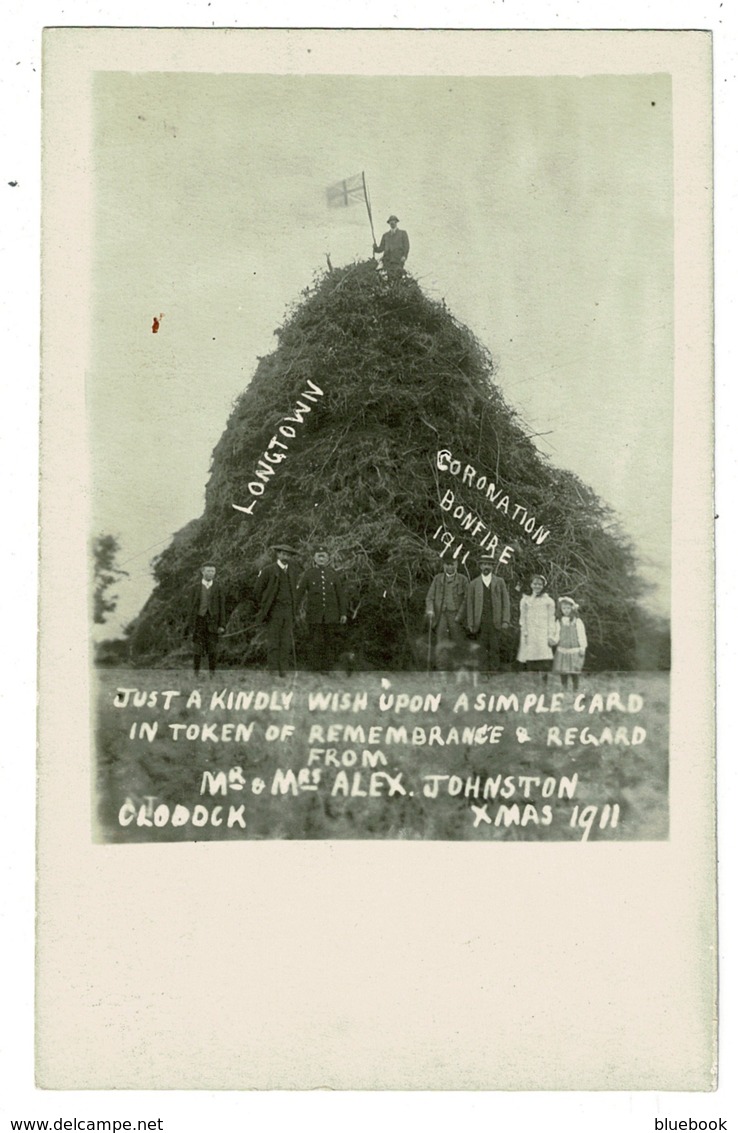 LONGTOWN
CORONATION
BONFIRE
1911
JUST A KINDLY WISH UPON A SIMPLE CARD
IN TOKEN OF REMEMBRANCE & REGARD
FROM
MR & MRS ALEX. JOHNSTON
CLODOCK XMAS 1911
www.ebay.com/str/memoryman bluebook